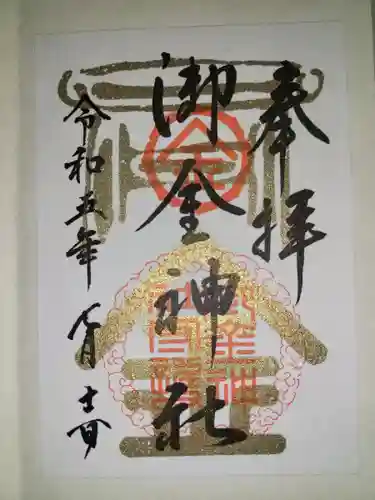 奉拝
御金神社
令和五年 八月 十一日